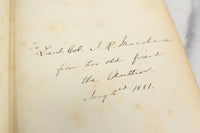 To
Lieut. Col. J. R. Macshane
from his old friend
the Author.
Aug 2nd 1881.